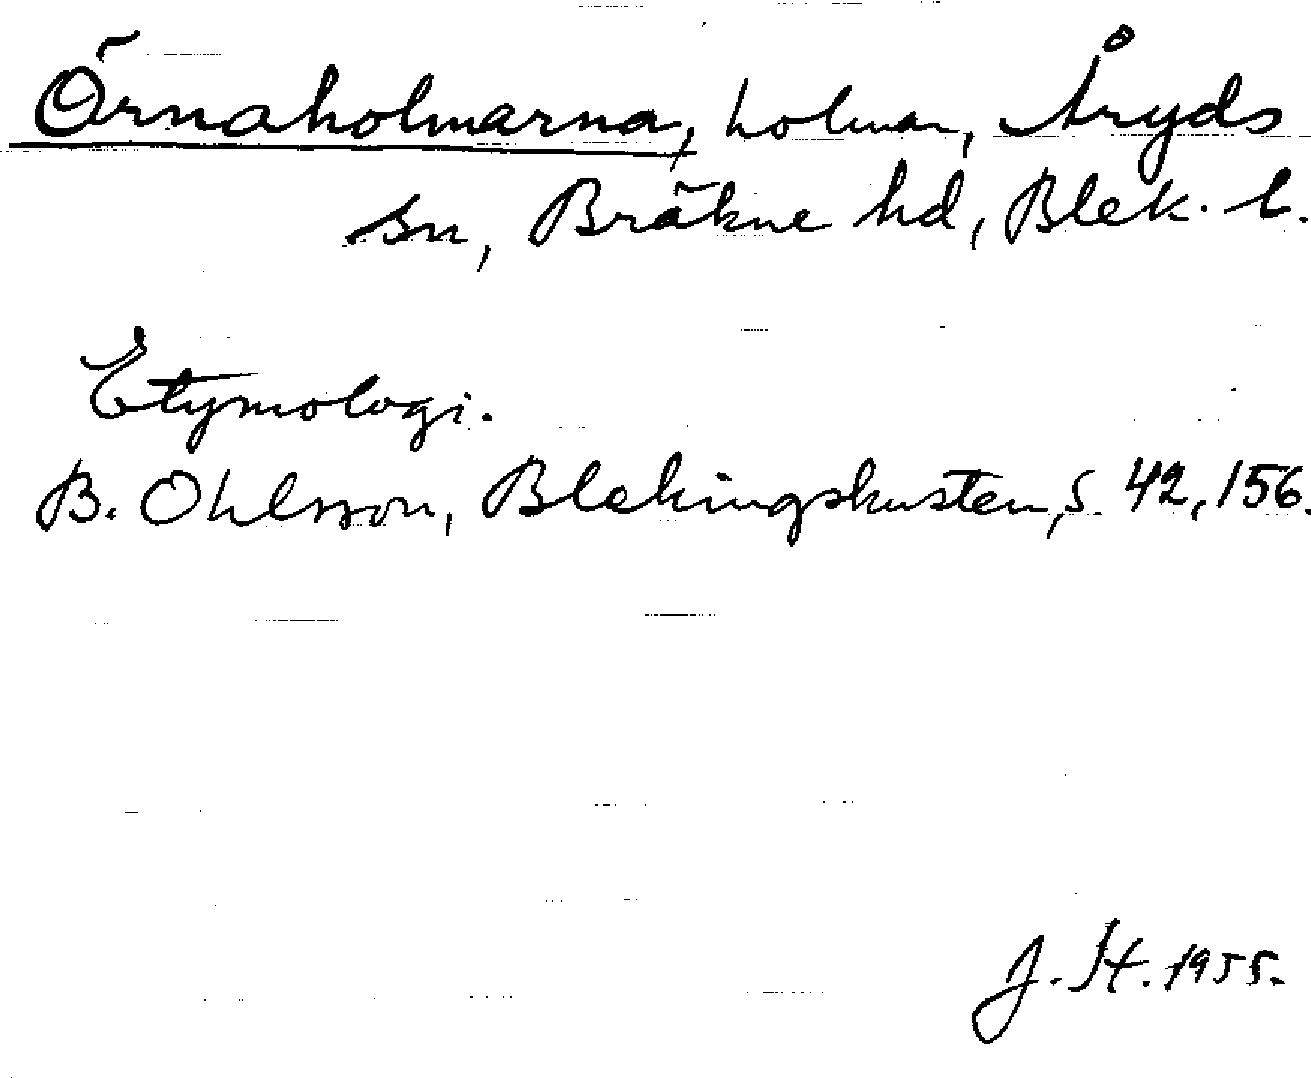 Örnaholmarna, holmar, Åryds
sn, Bräkne hd, Blek. l.
Etymologi.
B. Ohlsson, Blekingskusten, s. 42, 156.
J. H. 1955.